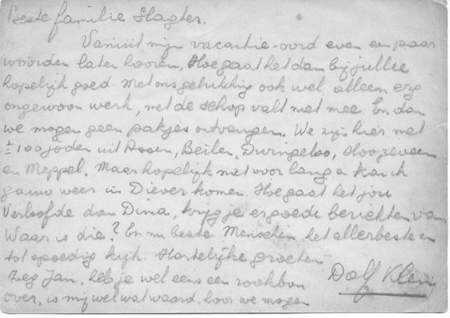 Beste familie Slagter.
Vanuit mijn vacantie-oord even een paar
woorden laten hooren, Hoe gaat het dan bij jullie
hopelijk goed. Met ons gelukkig ook wel alleen erg
ongewoon werk, met de schop valt niet mee. En dan
we mogen geen pakjes ontvangen. We zijn hier met
± 100 joden uit Assen, Beilen, Dwingeloo, Hoogeveen
en Meppel. Maar hopelijk niet voor lang en kan ik
gauw weer in Diever komen. Hoe gaat het jou
Verloofde dan Dina, krijg je er goede berichten van
Waar is die? En nu beste Menschen, het allerbeste en
tot spoedig kijk. Hartelijke groeten
Zeg Jan, heb je wel eens een rookbon Dolf Klein
over, is mij wel wat waard, hoor we mogen